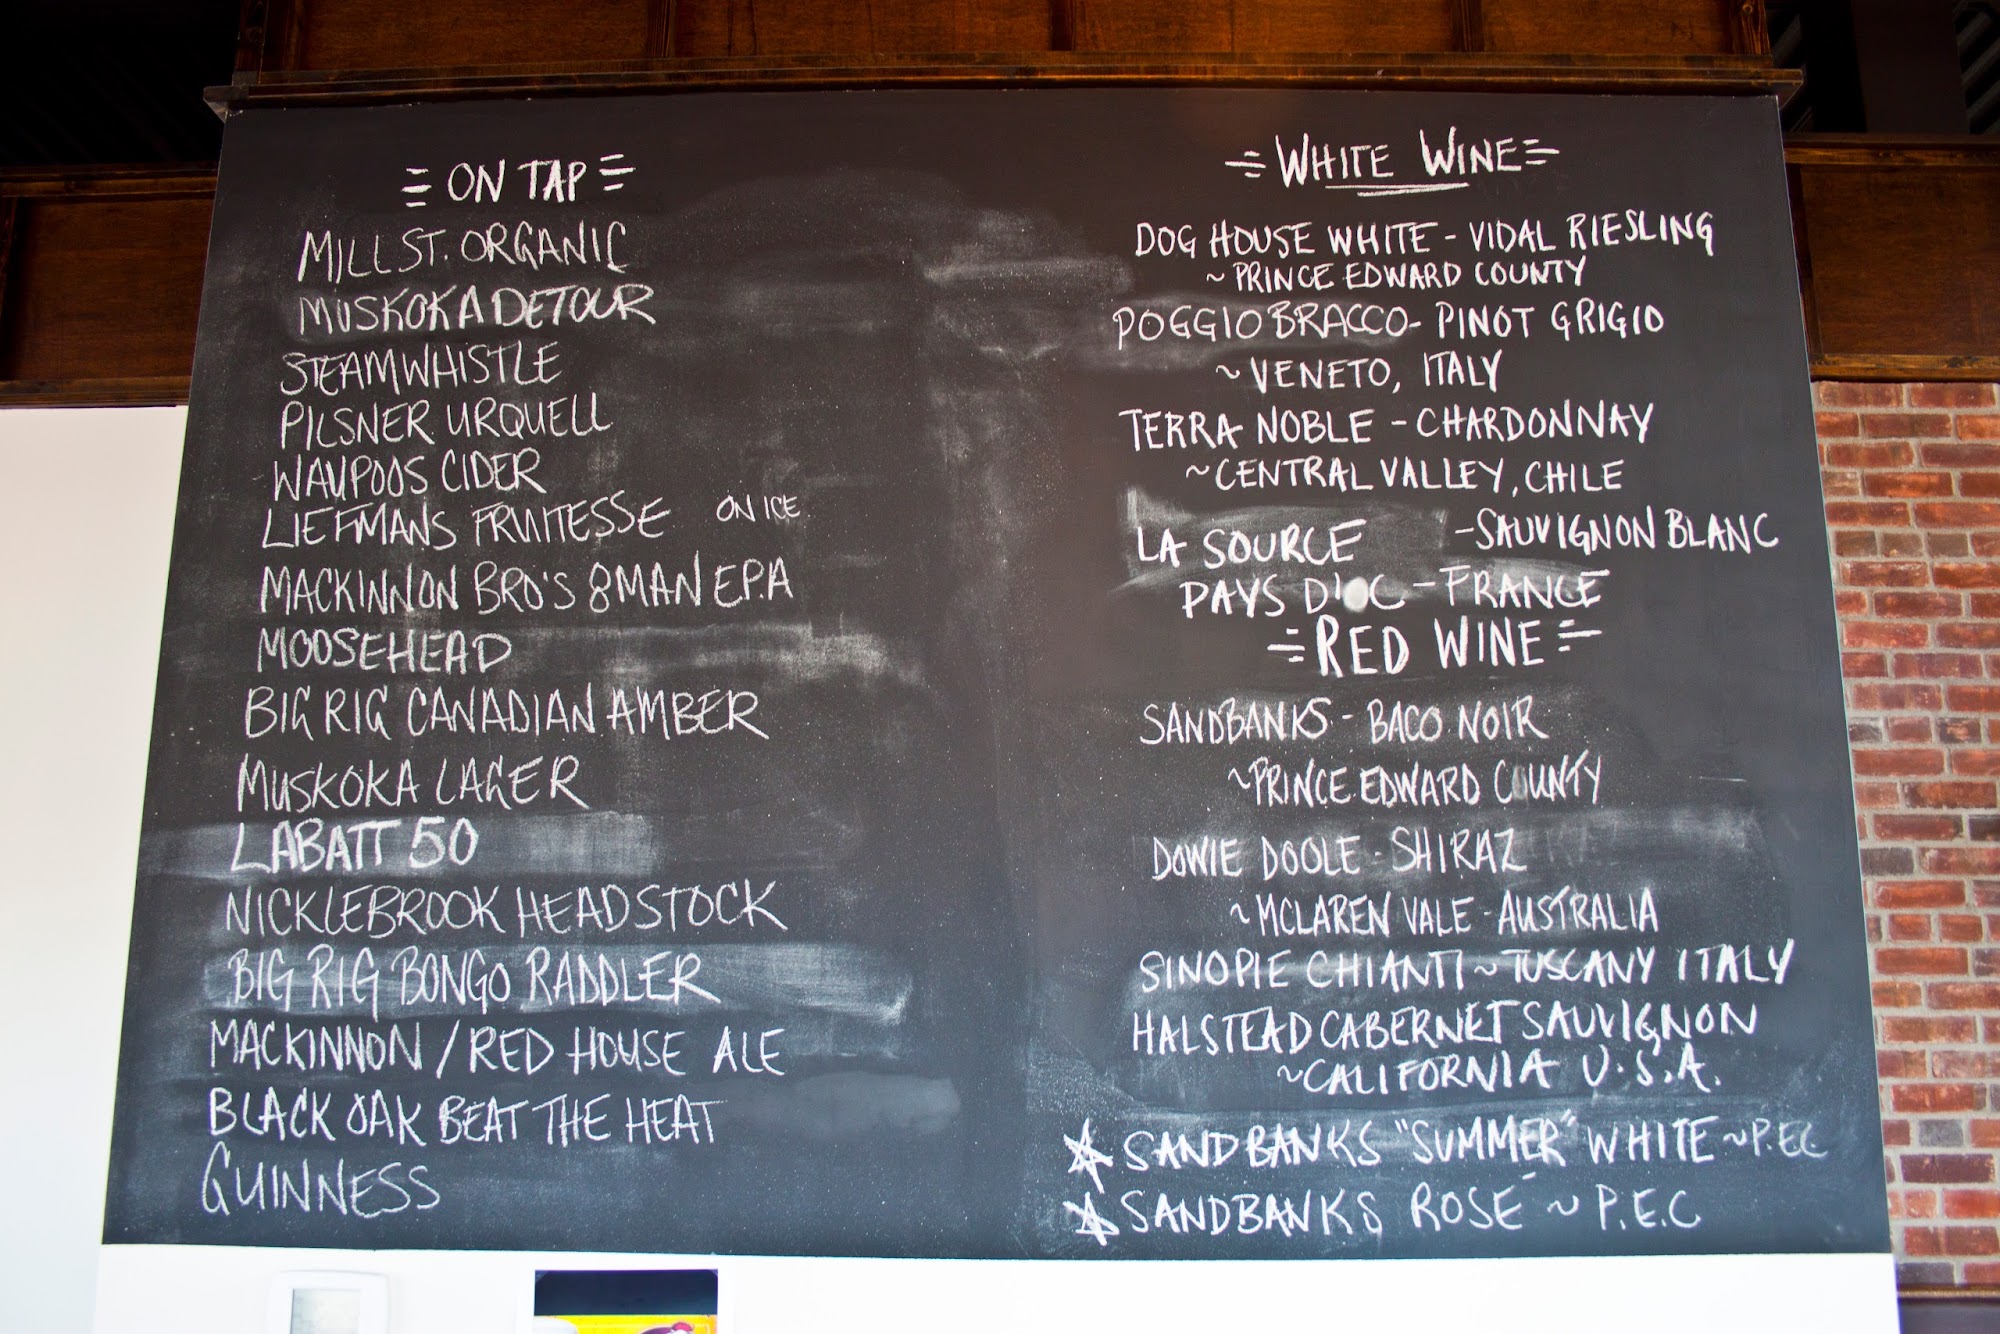 ON TAP
MILL ST. ORGANIC
MUSKOKA DETOUR
STEAMWHISTLE
PILSNER URQUELL
WAUPOOS CIDER
LIEFMANS FRUITESSE ON ICE
MACKINNON BRO'S 8 MAN E.P.A
MOOSEHEAD
BIG RIG CANADIAN AMBER
MUSKOKA LAGER
LABATT 50
NICKLEBROOK HEADSTOCK
BIG RIG BONGO RADDLER
MACKINNON / RED HOUSE ALE
BLACK OAK BEAT THE HEAT
GUINNESS
WHITE WINE
DOG HOUSE WHITE - VIDAL RIESLING
~ PRINCE EDWARD COUNTY
POGGIO BRACCO - PINOT GRIGIO
~ VENETO, ITALY
TERRA NOBLE - CHARDONNAY
~ CENTRAL VALLEY, CHILE
LA SOURCE - SAUVIGNON BLANC
PAYS D'OC - FRANCE
RED WINE
SANDBANKS - BACO NOIR
~ PRINCE EDWARD COUNTY
DOWIE DOOLE - SHIRAZ
~ MCLAREN VALE - AUSTRALIA
SINOPIE CHIANTI ~ TUSCANY ITALY
HALSTEAD CABERNET SAUVIGNON
~ CALIFORNIA U.S.A.
☆ SANDBANKS "SUMMER" WHITE ~ P.EC
☆ SANDBANKS ROSÉ ~ P.E.C